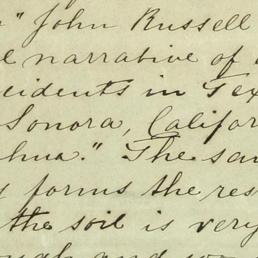 " John Russell
narrative of
cidents in Tex
Sonora, Califor
hua." The sa
forms the res
the soil is very
and